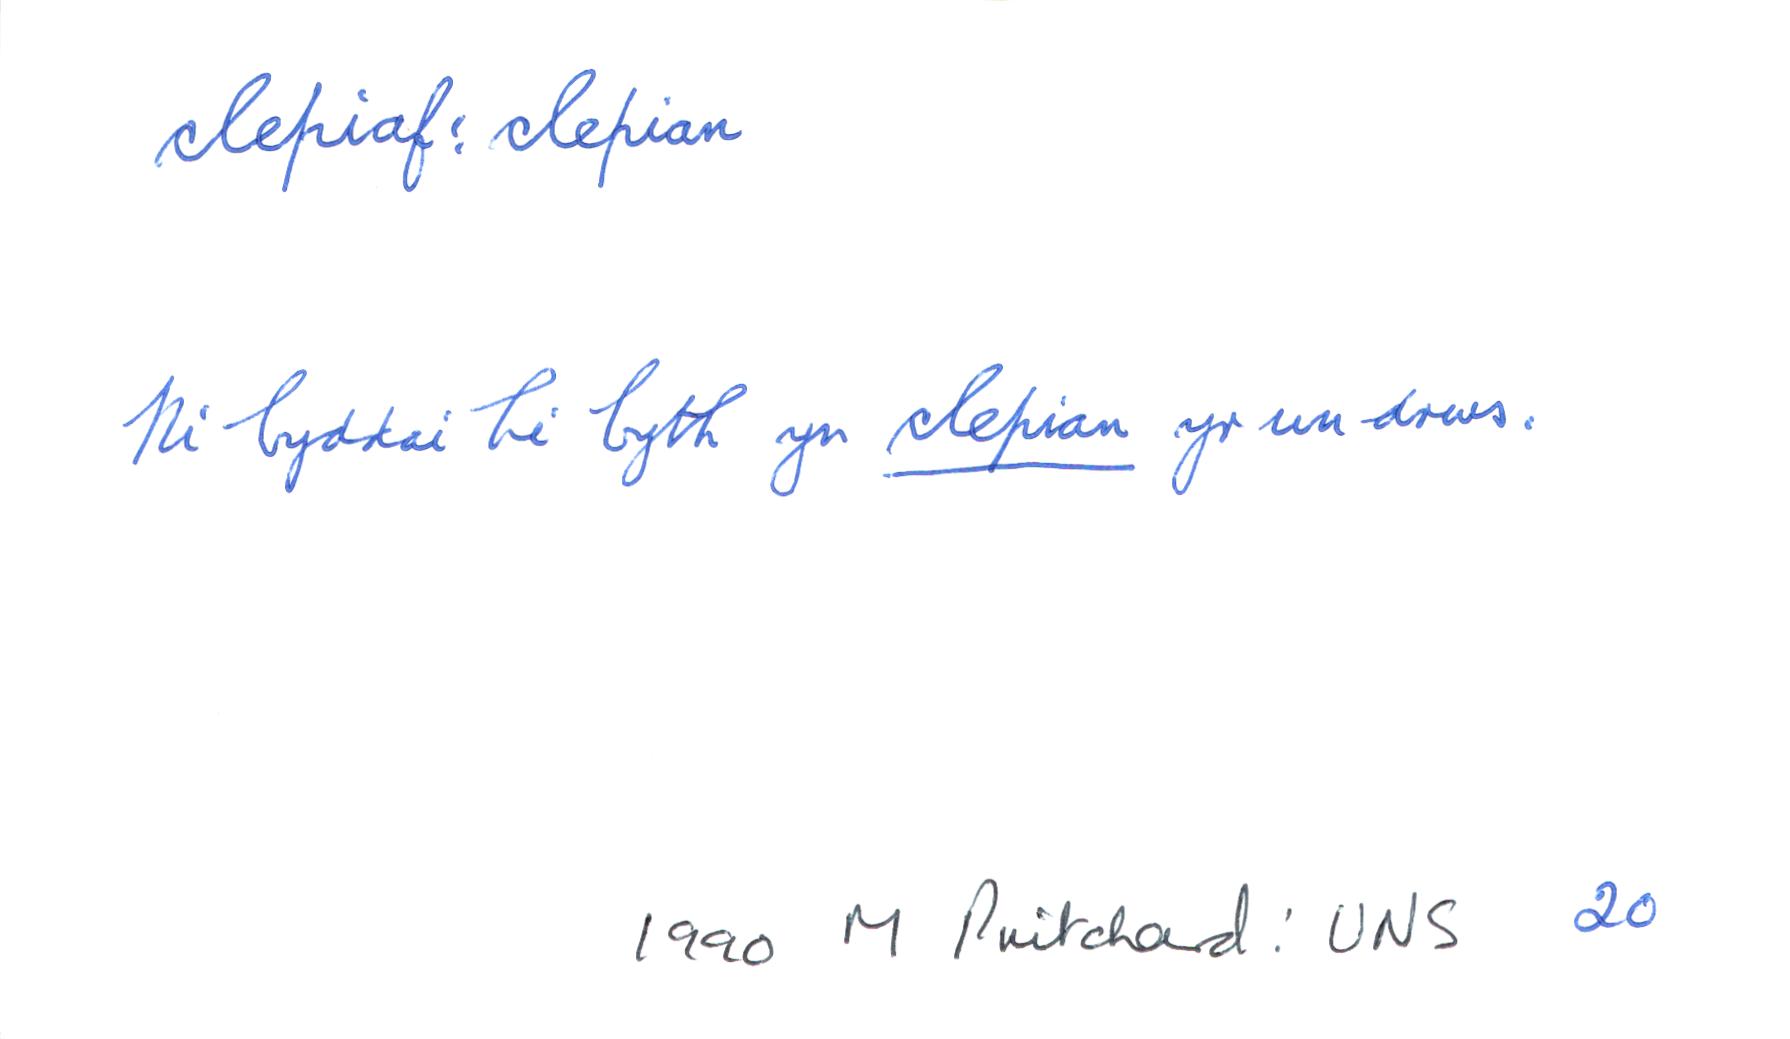 clepiaf: clepian
Ni byddai hi byth yn clepian yr un drws.
1990 M Pritchard: UNS 20